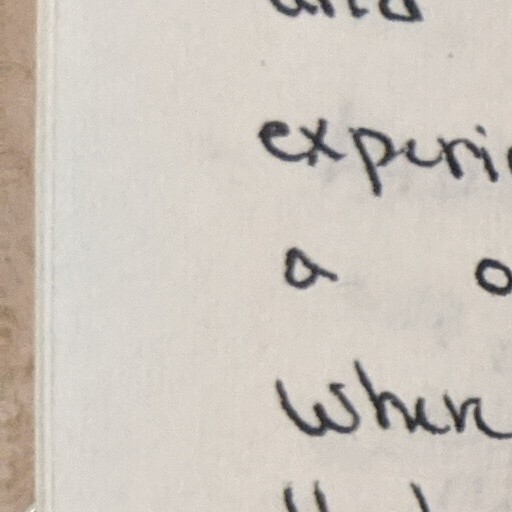 and
experi
a o
when